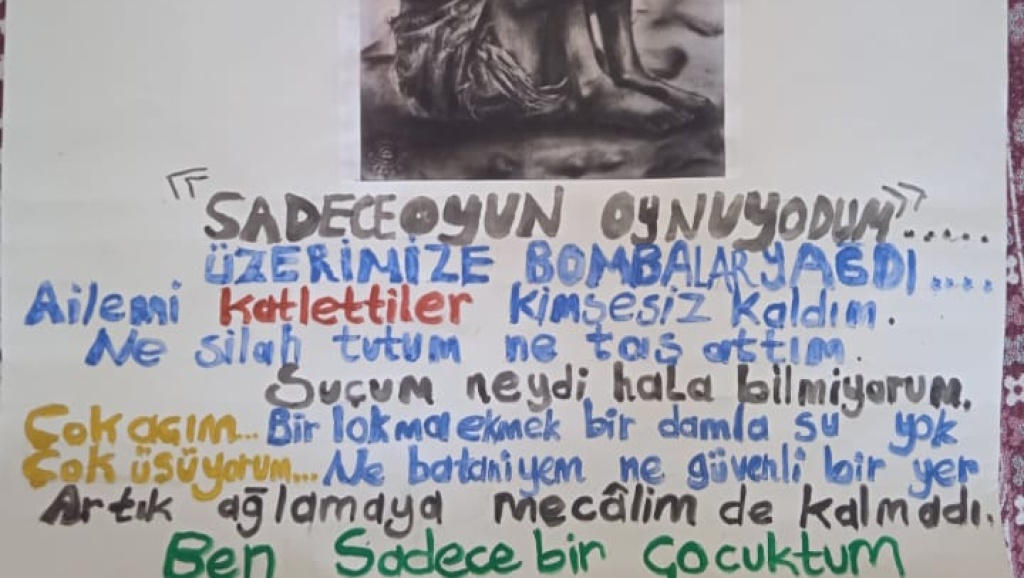 "SADECE OYUN OYNUYODUM".....
ÜZERİMİZE BOMBALAR YAĞDI....
Ailemi katlettiler kimsesiz kaldım.
Ne silah tutum ne taş attım.
Suçum neydi hala bilmiyorum.
Çok açım... Bir lokma ekmek bir damla su yok
Çok üşüyorum... Ne bataniyem ne güvenli bir yer
Artık ağlamaya mecâlim de kalmadı.
Ben Sadece bir Çocuktum